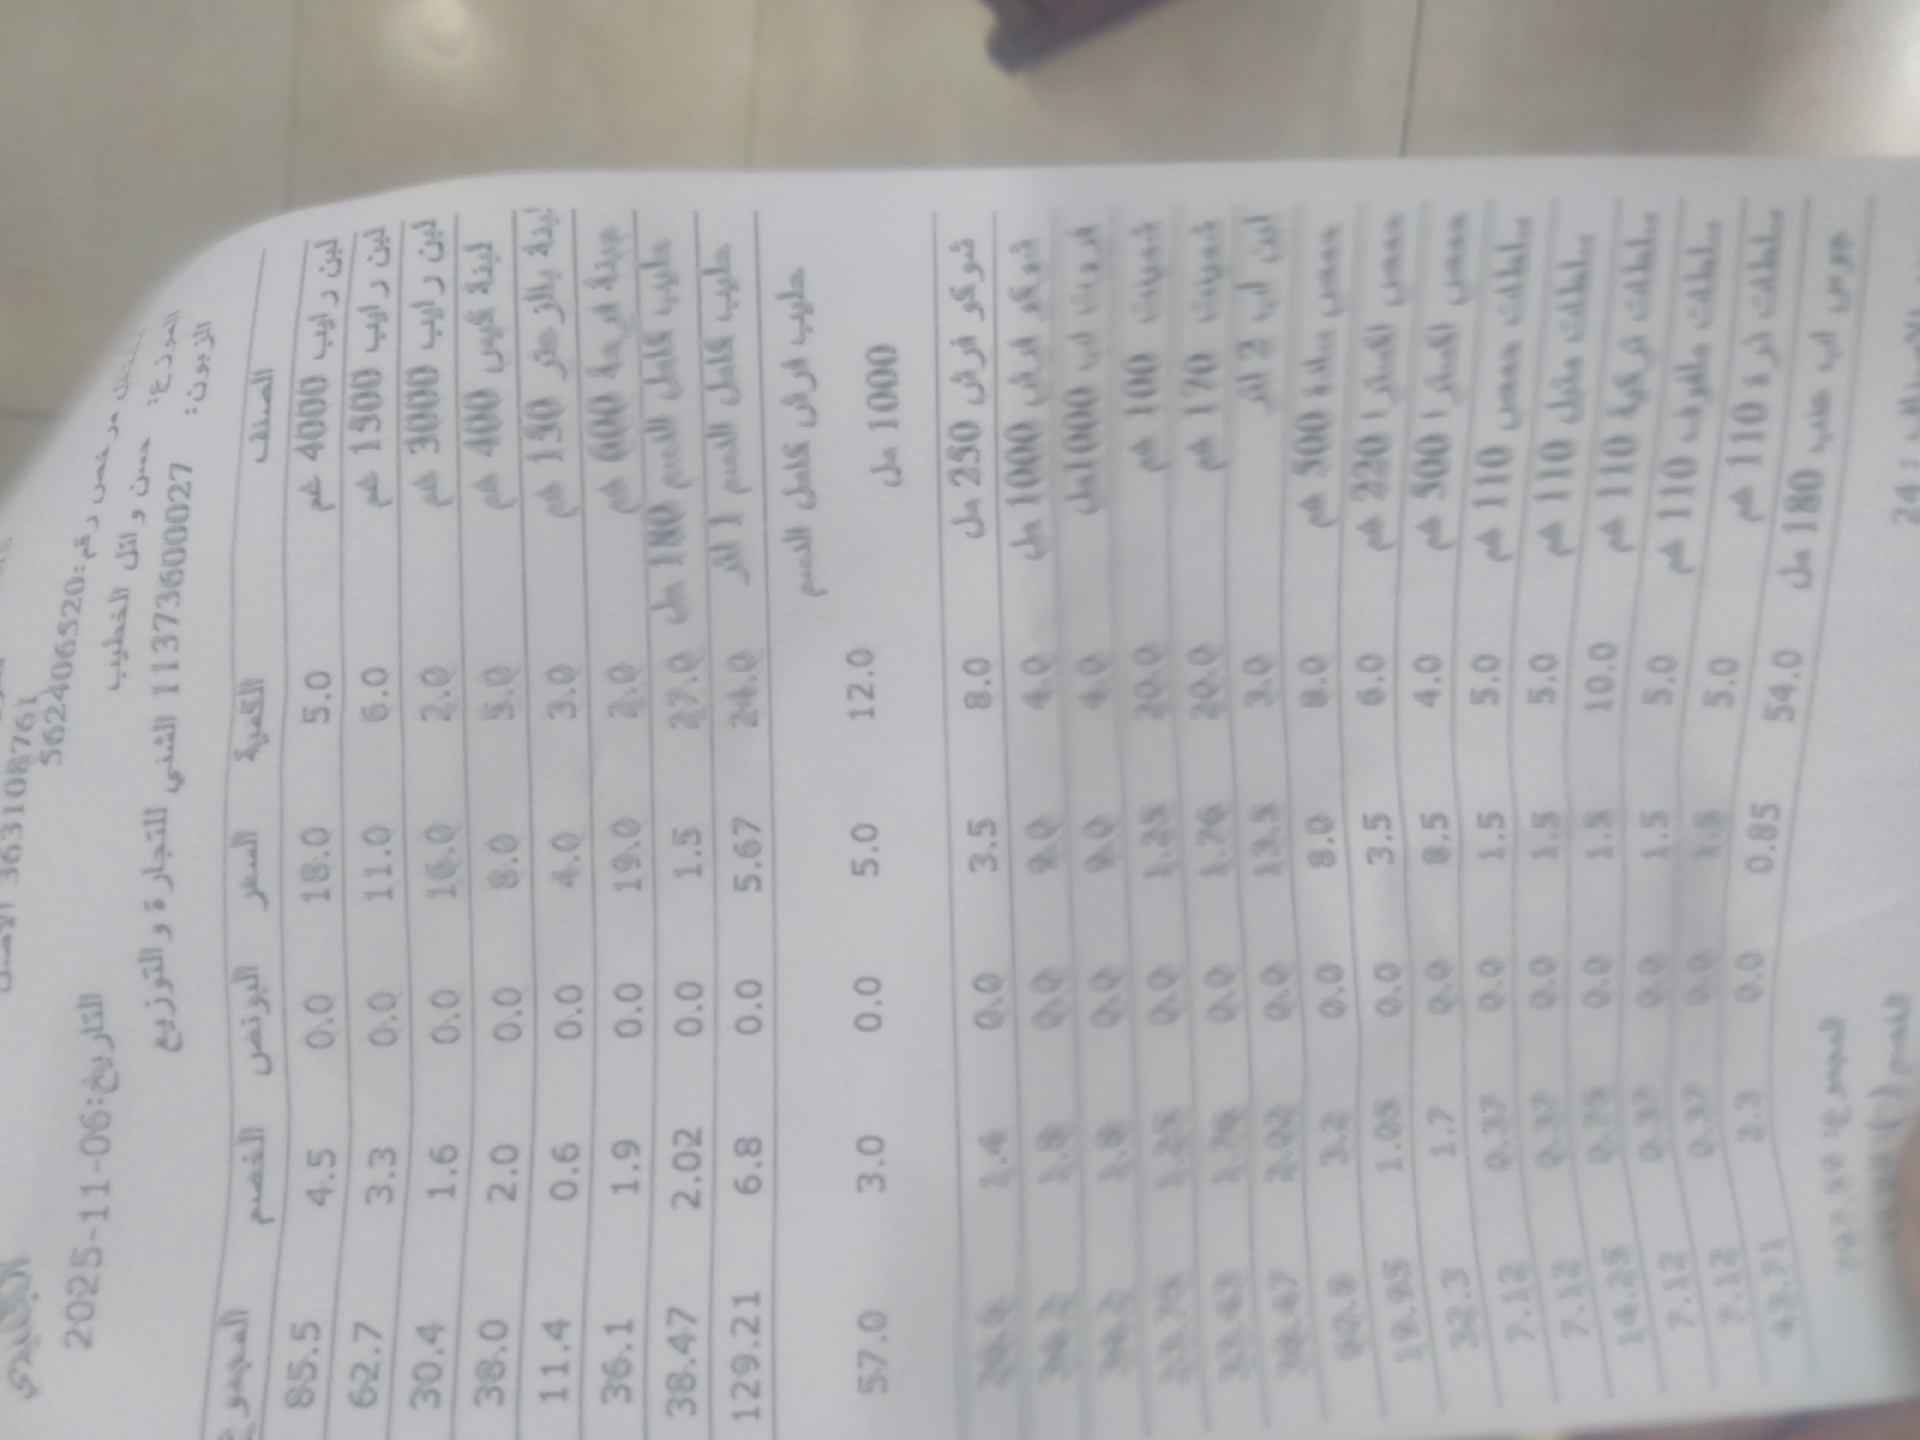 التاريخ:2025-11-06
562406520
مرخص رقم:
الموزع: حسن وائل الخطيب
الزبون: 1137360000027 الشني للتجارة والتوزيع
الصنف الكمية السعر البونص الخصم المجموع
لبن رايب 4000 غم 5.0 18.0 0.0 4.5 85.5
لبن رايب 1500 غم 6.0 11.0 0.0 3.3 62.7
لبن رايب 3000 غم 2.0 16.0 0.0 1.6 30.4
لبنة كوبي 400 غم 5.0 8.0 0.0 2.0 38.0
لبنة بالزعتر 150 غم 3.0 4.0 0.0 0.6 11.4
جبنة 600 غم 2.0 19.0 0.0 1.9 36.1
حليب كامل الدسم 180 مل 27.0 1.5 0.0 2.02 38.47
حليب كامل الدسم 1 لتر 24.0 5.67 0.0 6.8 129.21
حليب فرش كامل الدسم
1000 مل 12.0 5.0 0.0 3.0 57.0
شوكو فرش 250 مل 8.0 3.5 0.0 1.4
شوكو فرش 1000 مل 4.0 9.0 0.0 1.8
فروت اب 1000مل 4.0 9.0 0.0 1.8
شمينت 100 غم 20.0 1.25 0.0 1.25 23.75
شمينت 170 غم 20.0 0.0
لبن اب 2 لتر 3.0 13.5 0.0 2.02 38.47
حمص سادة 500 غم 8.0 8.0 0.0 3.2 60.8
حمص اكسترا 220 غم 6.0 3.5 0.0 1.05 19.95
حمص اكسترا 500 غم 4.0 8.5 0.0 1.7 32.3
سلطات حمص 110 غم 5.0 1.5 0.0 0.37 7.12
سلطات متبل 110 غم 5.0 1.5 0.0 0.37 7.12
سلطات تركية 110 غم 10.0 1.5 0.0 0.75 14.25
سلطات ملفوف 110 غم 5.0 1.5 0.0 0.37 7.12
سلطات ذرة 110 غم 5.0 1.5 0.0 0.37 7.12
جوس اب عنب 180 مل 54.0 0.85 0.0 2.3 43.71
المجموع:
241
الخصم